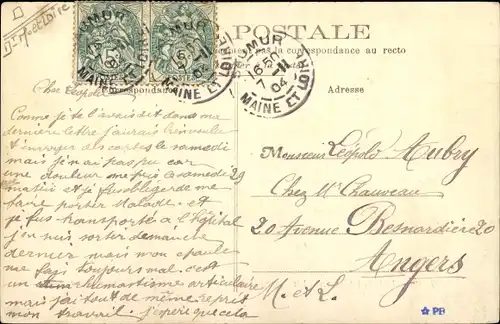 Dt M et Loire
POSTALE
la correspondance au recto
SAUMUR
16 50
7 -11
04
MAINE ET LOIRE
Correspondance
Adresse
Cher Léopold
Comme je te l'avais dit dans ma
dernière lettre j'aurais
et envoyer des cartes le samedi
mais j'ai pas pu car
une douleur me pris le samedi 29
matin et je fus obligé de me
faire porter Malade. et
je fus transporté à l'Hôpital
j'en suis sortir demanche
dernier mais mon épaule
me fais toujours mal. c'est
un rhumastisme articulaire
mais j'ai tout de même repris
mon travail. j'espère que cela
Monsieur Léopold Aubry
Chez Mr Chauveau
20 Avenue Besnardière 20
Angers
M. et L.
PB